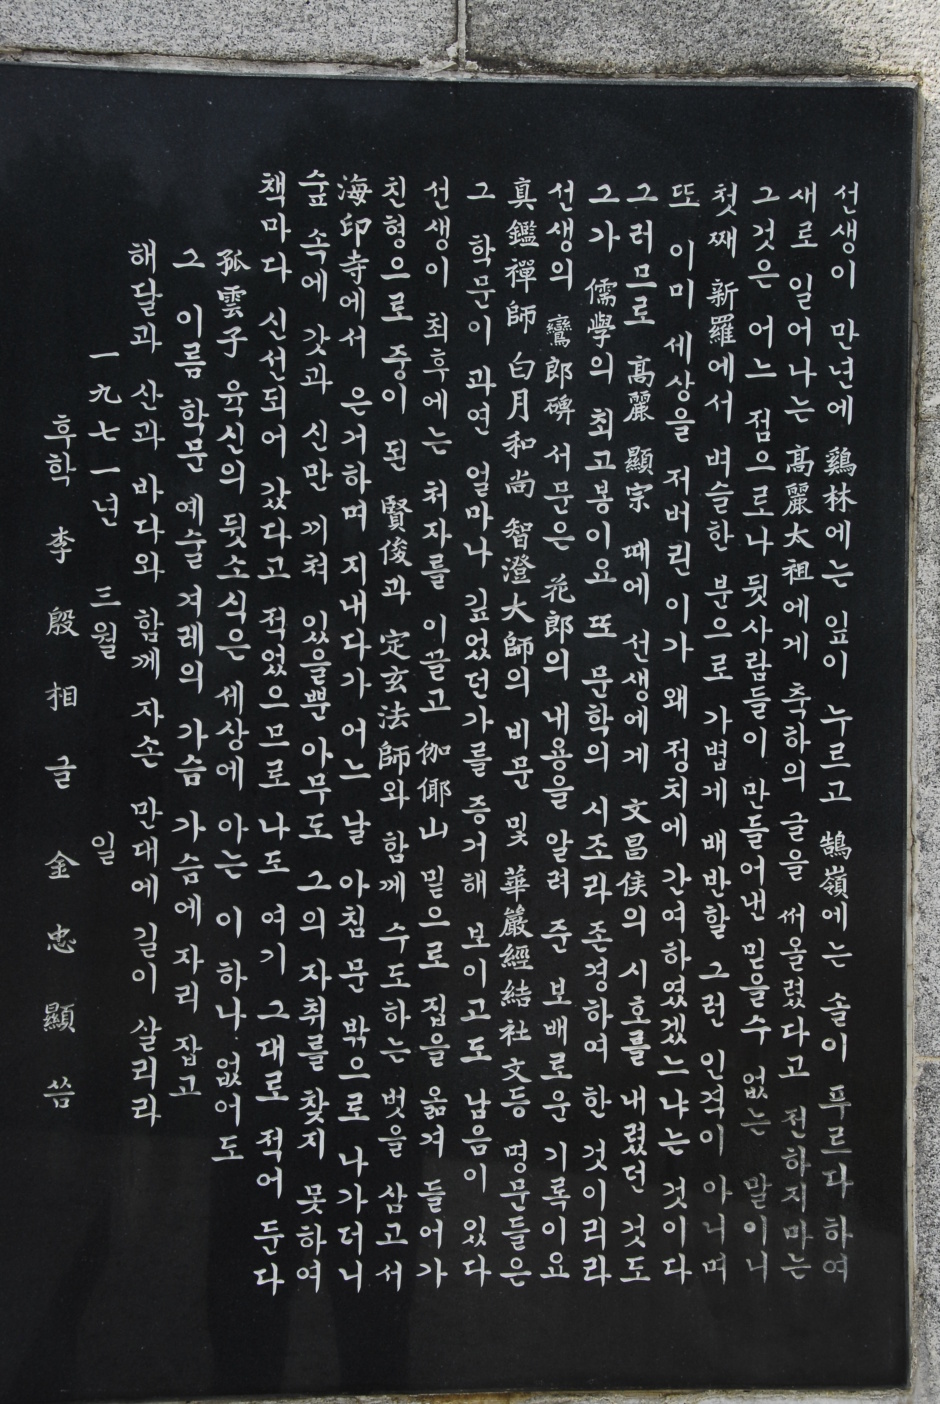 선생이 만년에 鷄林에는 잎이 누르고 鵠嶺에는 솔이 푸르다 하여
새로 일어나는 高麗太祖에게 축하의 글을 써올렸다고 전하지마는
그것은 어느 점으로나 뒷사람들이 만들어낸 믿을수 없는 말이니
첫째 新羅에서 벼슬한 분으로 가볍게 배반할 그런 인격이 아니며
또 이미 세상을 저버린 이가 왜 정치에 간여하였겠느냐는 것이다
그러므로 高麗 顯宗 때에 선생에게 文昌侯의 시호를 내렸던 것도
그가 儒學의 최고봉이요 또 문학의 시조라 존경하여 한 것이리라
선생의 鸞郎碑 서문은 花郎의 내용을 알려 준 보배로운 기록이요
眞鑑禪師 白月和尙 智澄大師의 비문 및 華嚴經結社文등 명문들은
그 학문이 과연 얼마나 깊었던가를 증거해 보이고도 남음이 있다
선생이 최후에는 처자를 이끌고 伽倻山 밑으로 집을 옮겨 들어가
친형으로 중이 된 賢俊과 定玄法師와 함께 수도하는 벗을 삼고서
海印寺에서 은거하며 지내다가 어느 날 아침 문 밖으로 나가더니
숲 속에 갓과 신만 끼쳐 있을뿐 아무도 그의 자취를 찾지 못하여
책마다 신선되어 갔다고 적었으므로 나도 여기 그대로 적어 둔다
孤雲子 육신의 뒷소식은 세상에 아는 이 하나 없어도
그 이름 학문 예술 겨레의 가슴 가슴에 자리 잡고
해달과 산과 바다와 함께 자손 만대에 길이 살리라
一九七一년 三월 일
후학 李殷相 글 金忠顯 씀